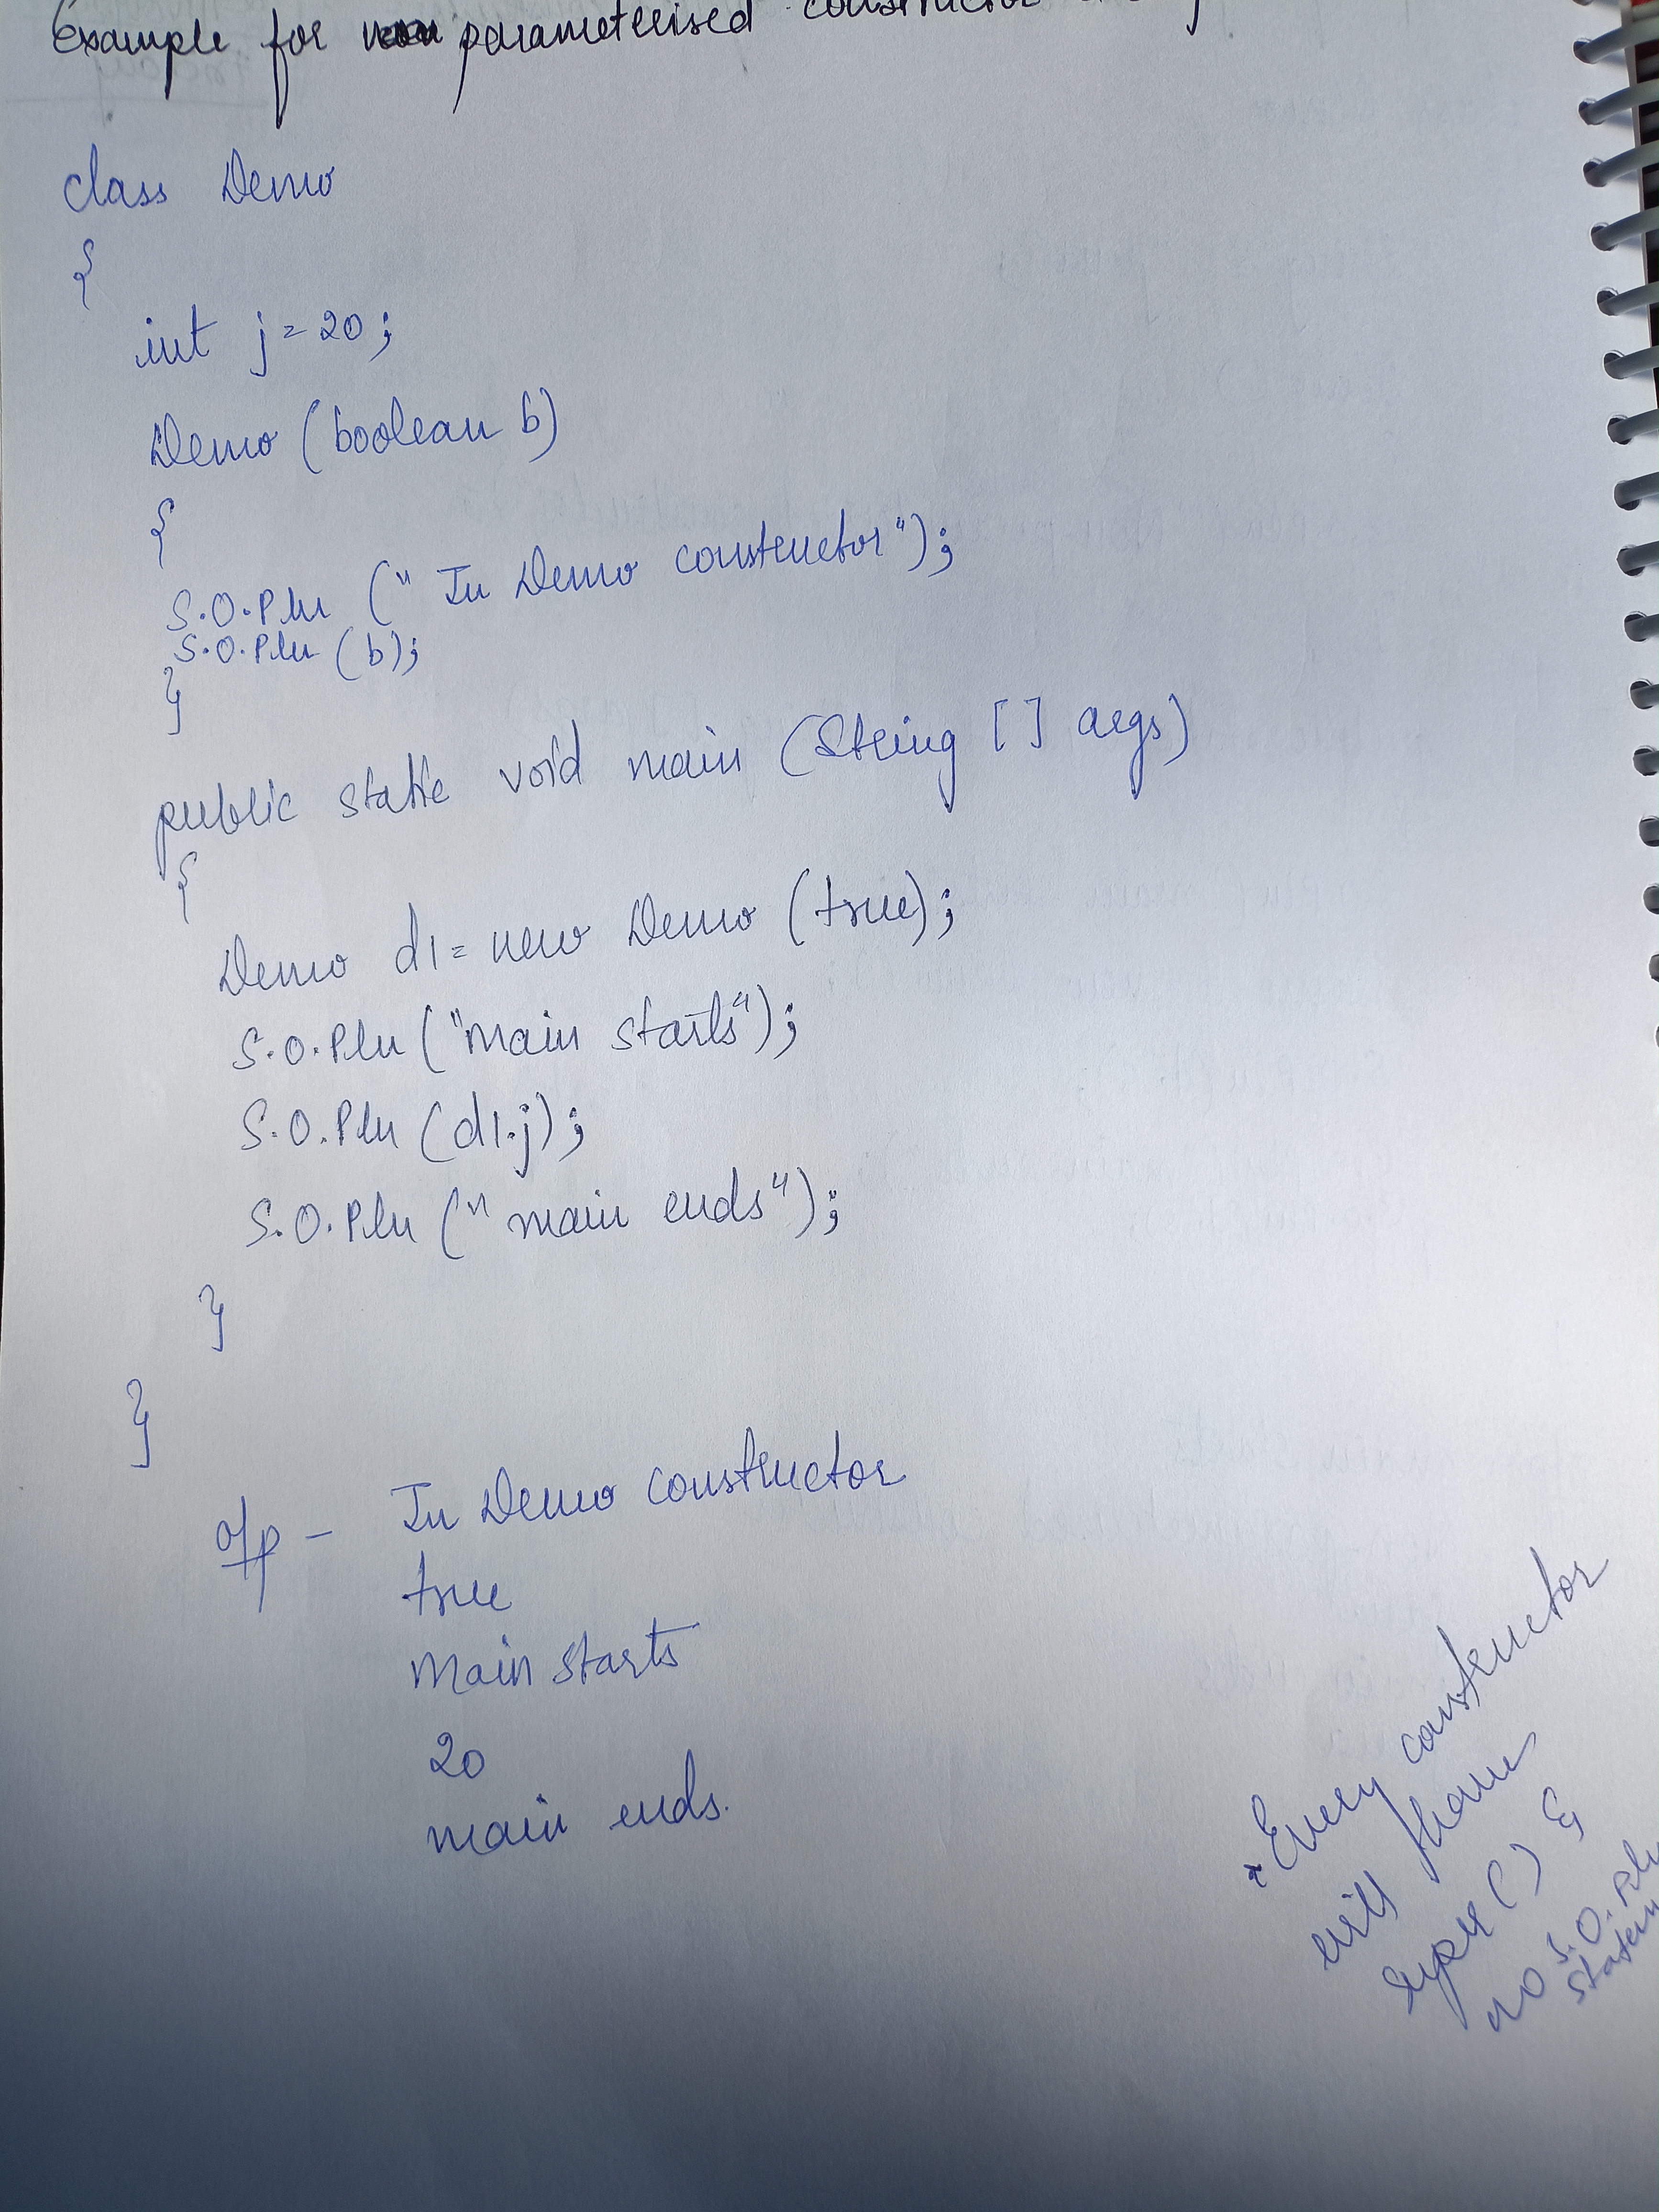 Example for parameterised constructor
class Demo
{
int j = 20;
Demo (boolean b)
{
S.O.Pln (" In Demo constructor");
S.O.Pln (b);
}
public static void main (String [ ] args)
{
Demo d1 = new Demo (true);
S.O.Pln ("main starts");
S.O.Pln (d1.j);
S.O.Pln (" main ends");
}
}
o/p - In Demo constructor
true
Main starts
20
main ends.
* Every constructor
will have
super ( ) &
no S.O.Pln